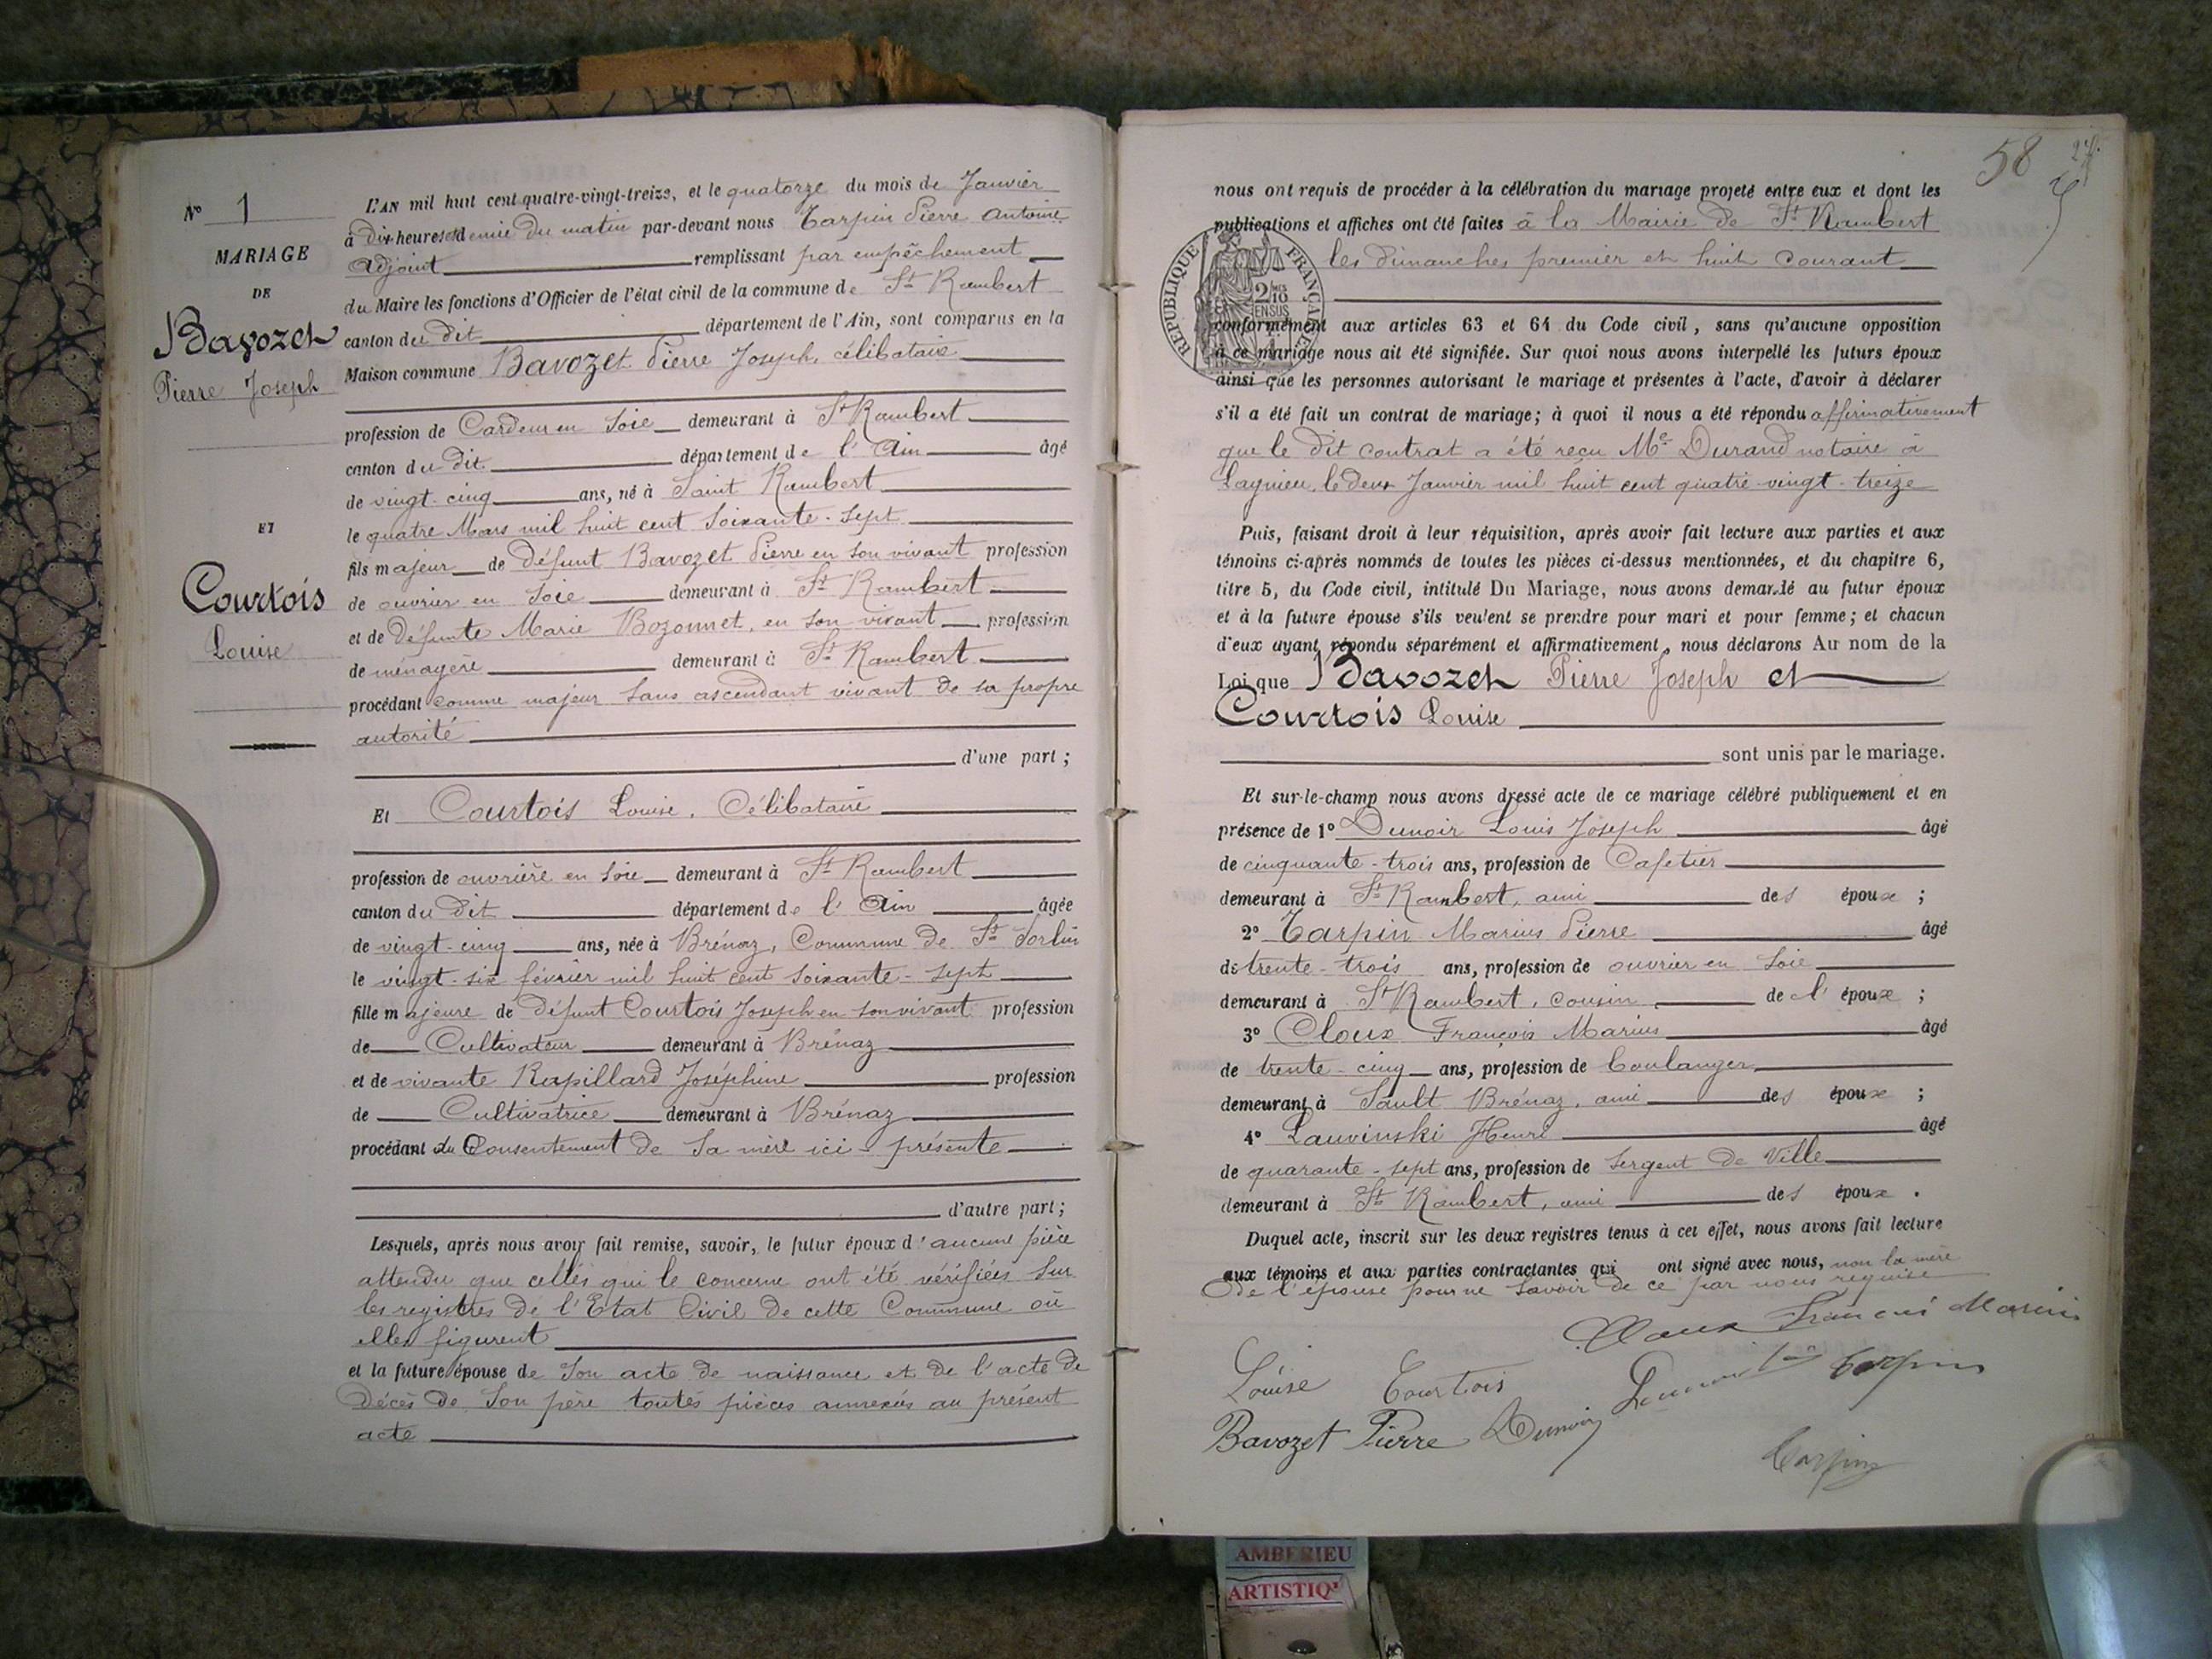 N° 1
MARIAGE
DE
Bavozet
Pierre Joseph
ET
Courtois
Louise
L'AN mil huit cent quatre-vingt-treize, et le quatorze du mois de Janvier
à dix heures et demie du matin par-devant nous Tarpin Pierre Antoine
adjoint remplissant par empêchement
du Maire les fonctions d'Officier de l'état civil de la commune de St Rambert
canton du dit département de l'Ain, sont comparus en la
Maison commune Bavozet Pierre Joseph, célibataire
profession de Cardeur en Soie demeurant à St Rambert
canton du dit département de l'Ain âgé
de vingt-cinq ans, né à Saint Rambert
le quatre Mars mil huit cent soixante-sept
fils majeur de défunt Bavozet Pierre en son vivant profession
de ouvrier en Soie demeurant à St Rambert
et de défunte Marie Bozonnet, en son vivant profession
de ménagère demeurant à St Rambert
procédant comme majeur sans ascendant vivant de sa propre
autorité
d'une part ;
Et Courtois Louise, Célibataire
profession de ouvrière en soie demeurant à St Rambert
canton du dit département de l'Ain âgée
de vingt-cinq ans, née à Brénaz, Commune de St Sorlin
le vingt-six février mil huit cent soixante-sept
fille majeure de défunt Courtois Joseph en son vivant profession
de Cultivateur demeurant à Brénaz
et de vivante Rapillard Joséphine profession
de Cultivatrice demeurant à Brénaz
procédant du Consentement de sa mère ici présente
d'autre part ;
Lesquels, après nous avoir fait remise, savoir, le futur époux d'aucune pièce
attendu que celles qui le concerne ont été vérifiées sur
les registres de l'Etat Civil de cette Commune où
elles figurent
et la future épouse de Son acte de naissance et de l'acte de
décès de Son père toutes pièces annexées au présent
acte
58
nous ont requis de procéder à la célébration du mariage projeté entre eux et dont les
publications et affiches ont été faites à la Mairie de St Rambert
les dimanches premier et huit courant
RÉPUBLIQUE FRANÇAISE
conformément aux articles 63 et 64 du Code civil, sans qu'aucune opposition
à ce mariage nous ait été signifiée. Sur quoi nous avons interpellé les futurs époux
ainsi que les personnes autorisant le mariage et présentes à l'acte, d'avoir à déclarer
s'il a été fait un contrat de mariage ; à quoi il nous a été répondu affirmativement
que le dit contrat a été reçu Me Durand notaire à
Lagnieu, le deux Janvier mil huit cent quatre-vingt-treize
Puis, faisant droit à leur réquisition, après avoir fait lecture aux parties et aux
témoins ci-après nommés de toutes les pièces ci-dessus mentionnées, et du chapitre 6,
titre 5, du Code civil, intitulé Du Mariage, nous avons demandé au futur époux
et à la future épouse s'ils veulent se prendre pour mari et pour femme ; et chacun
d'eux ayant répondu séparément et affirmativement, nous déclarons Au nom de la
Loi que Bavozet Pierre Joseph et
Courtois Louise
sont unis par le mariage.
Et sur-le-champ nous avons dressé acte de ce mariage célébré publiquement et en
présence de 1° Dunoir Louis Joseph âgé
de cinquante-trois ans, profession de Cafetier
demeurant à St Rambert, ami des époux ;
2° Tarpin Marius Pierre âgé
de trente-trois ans, profession de ouvrier en Soie
demeurant à St Rambert, cousin de l'époux ;
3° Cloux François Marius âgé
de trente-cinq ans, profession de boulanger
demeurant à Sault Brénaz, ami des époux ;
4° Lauvinski Henri âgé
de quarante-sept ans, profession de Sergent de Ville
demeurant à St Rambert, ami des époux.
Duquel acte, inscrit sur les deux registres tenus à cet effet, nous avons fait lecture
aux témoins et aux parties contractantes qui ont signé avec nous, non la mère
de l'épouse pour ne savoir de ce par nous requise
Cloux François Marius
Louise Courtois
Tarpin
Bavozet Pierre Dunoir
Tarpin
AMBERIEU
ARTISTIQ'